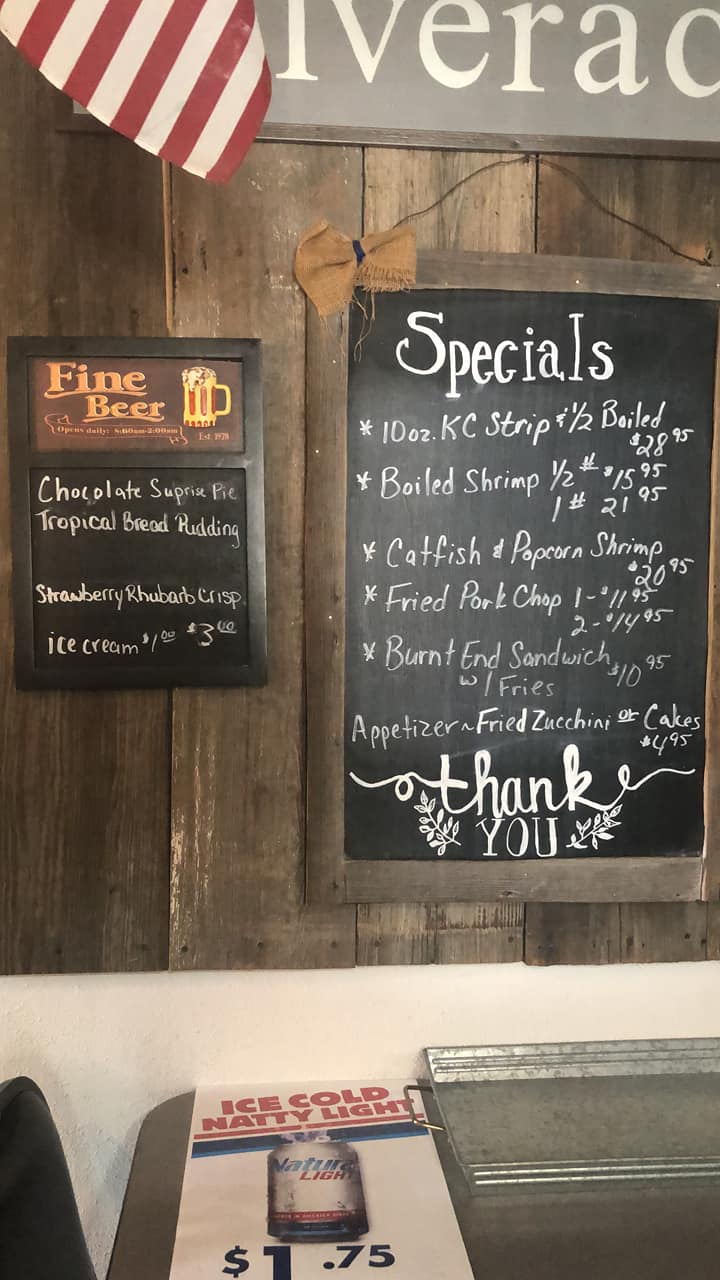 iverac
Fine
Beer
Opens daily: 8:00am-2:00am
Est. 1978
Chocolate Suprise Pie
Tropical Bread Pudding
Strawberry Rhubarb Crisp
ice cream $1.00 $3.00
Specials
* 10oz. KC Strip & 1/2 Boiled
$28.95
* Boiled Shrimp 1/2 # $15.95
1 # 21.95
* Catfish & Popcorn Shrimp
$20.95
* Fried Pork Chop 1-$11.95
2-$14.95
* Burnt End Sandwich $10.95
w/ Fries
Appetizer ~ Fried Zucchini or Cakes
$4.95
thank
YOU
ICE COLD
NATTY LIGHT
Natural
LIGHT
$1.75